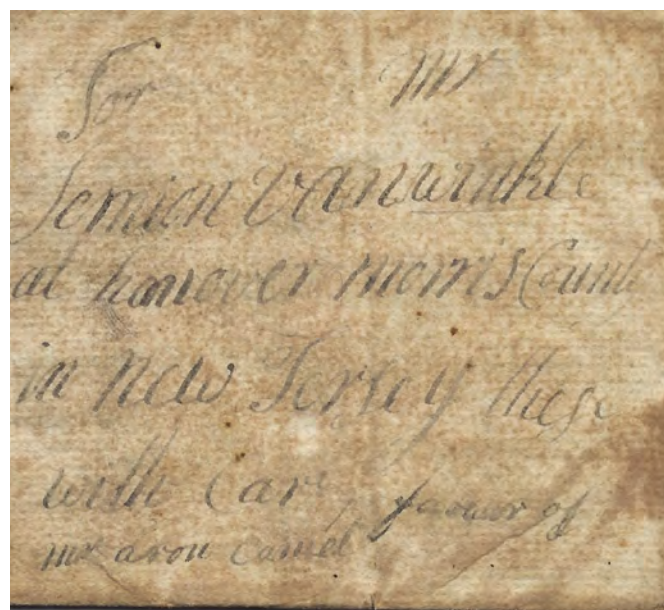 For mr
Jemien Vanwinkle
at hanover morris County
in new Jersey these
with Care favour of
mr aron Camel